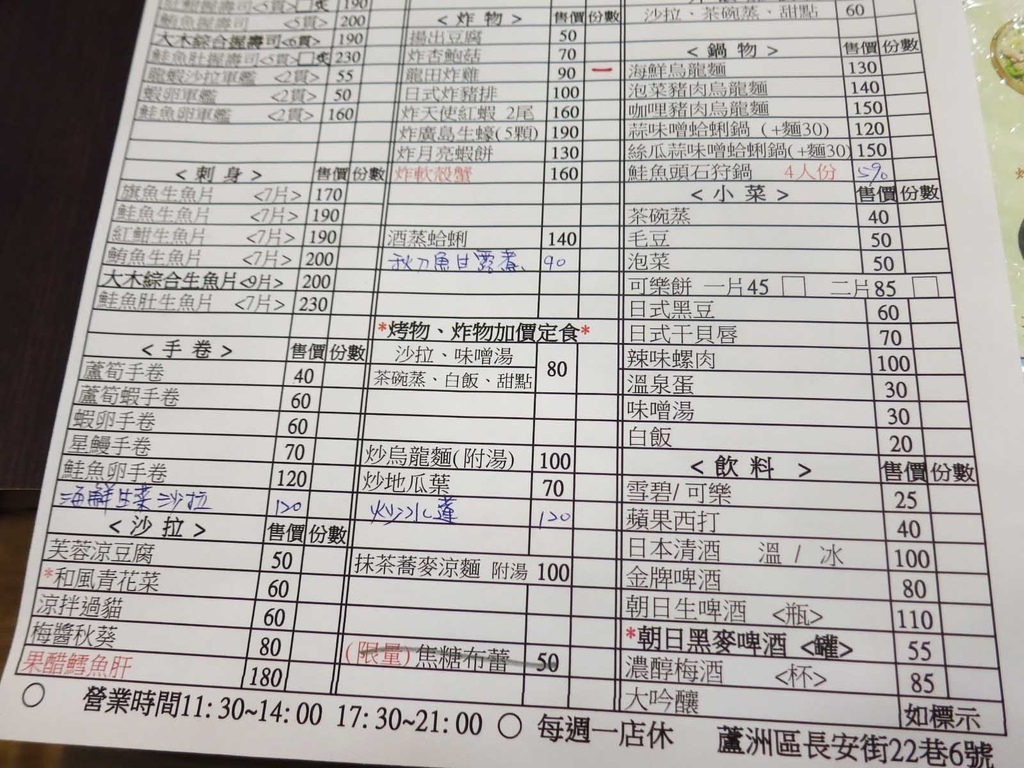 鮭魚握壽司<5貫> 190
鮪魚壽司<5貫> 200
大木綜合握壽司<6貫> 190
鮭魚肚握壽司<5貫> 230
龍蝦沙拉軍艦 <2貫> 55
蝦卵軍艦 <2貫> 50
鮭魚卵軍艦 <2貫> 160
<刺身> 售價 份數
旗魚生魚片 <7片> 170
鮭魚生魚片 <7片> 190
紅魽生魚片 <7片> 190
鮪魚生魚片 <7片> 200
大木綜合生魚片<9片> 200
鮭魚肚生魚片 <7片> 230
<手卷> 售價 份數
蘆筍手卷 40
蘆筍蝦手卷 60
蝦卵手卷 60
星鰻手卷 70
鮭魚卵手卷 120
海鮮生菜沙拉 120
<沙拉> 售價 份數
芙蓉涼豆腐 50
*和風青花菜 60
涼拌過貓 60
梅醬秋葵 80
果醋鱈魚肝 180
<炸物> 售價 份數
揚出豆腐 50
炸杏鮑菇 70
龍田炸雞 90 一
日式炸豬排 100
炸天使紅蝦 2尾 160
炸廣島生蠔(5顆) 190
炸月亮蝦餅 130
炸軟殼蟹 160
酒蒸蛤蜊 140
秋刀魚甘露煮 90
*烤物、炸物加價定食*
沙拉、味噌湯
茶碗蒸、白飯、甜點 80
炒烏龍麵(附湯) 100
炒地瓜葉 70
炒水蓮 120
抹茶蕎麥涼麵 附湯 100
(限量)焦糖布蕾 50
沙拉、茶碗蒸、甜點 60
<鍋物> 售價 份數
海鮮烏龍麵 130
泡菜豬肉烏龍麵 140
咖哩豬肉烏龍麵 150
蒜味噌蛤蜊鍋 (+麵30) 120
絲瓜蒜味噌蛤蜊鍋(+麵30) 150
鮭魚頭石狩鍋 4人份 590
<小菜> 售價 份數
茶碗蒸 40
毛豆 50
泡菜 50
可樂餅 一片45 □ 二片85 □
日式黑豆 60
日式干貝唇 70
辣味螺肉 100
溫泉蛋 30
味噌湯 30
白飯 20
<飲料> 售價 份數
雪碧/可樂 25
蘋果西打 40
日本清酒 溫 / 冰 100
金牌啤酒 80
朝日生啤酒 <瓶> 110
*朝日黑麥啤酒 <罐> 55
濃醇梅酒 <杯> 85
大吟釀 如標示
○ 營業時間11:30~14:00 17:30~21:00 ○ 每週一店休 蘆洲區長安街22巷6號